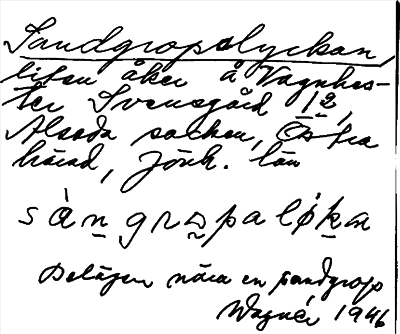 Sandgropslyckan,
liten åker å Vagnhes-
ter Svensgård 12,
Alseda socken, Östra
härad, Jönk. län
sàngropalykan
Belägen nära en sandgrop
Wagnér 1946